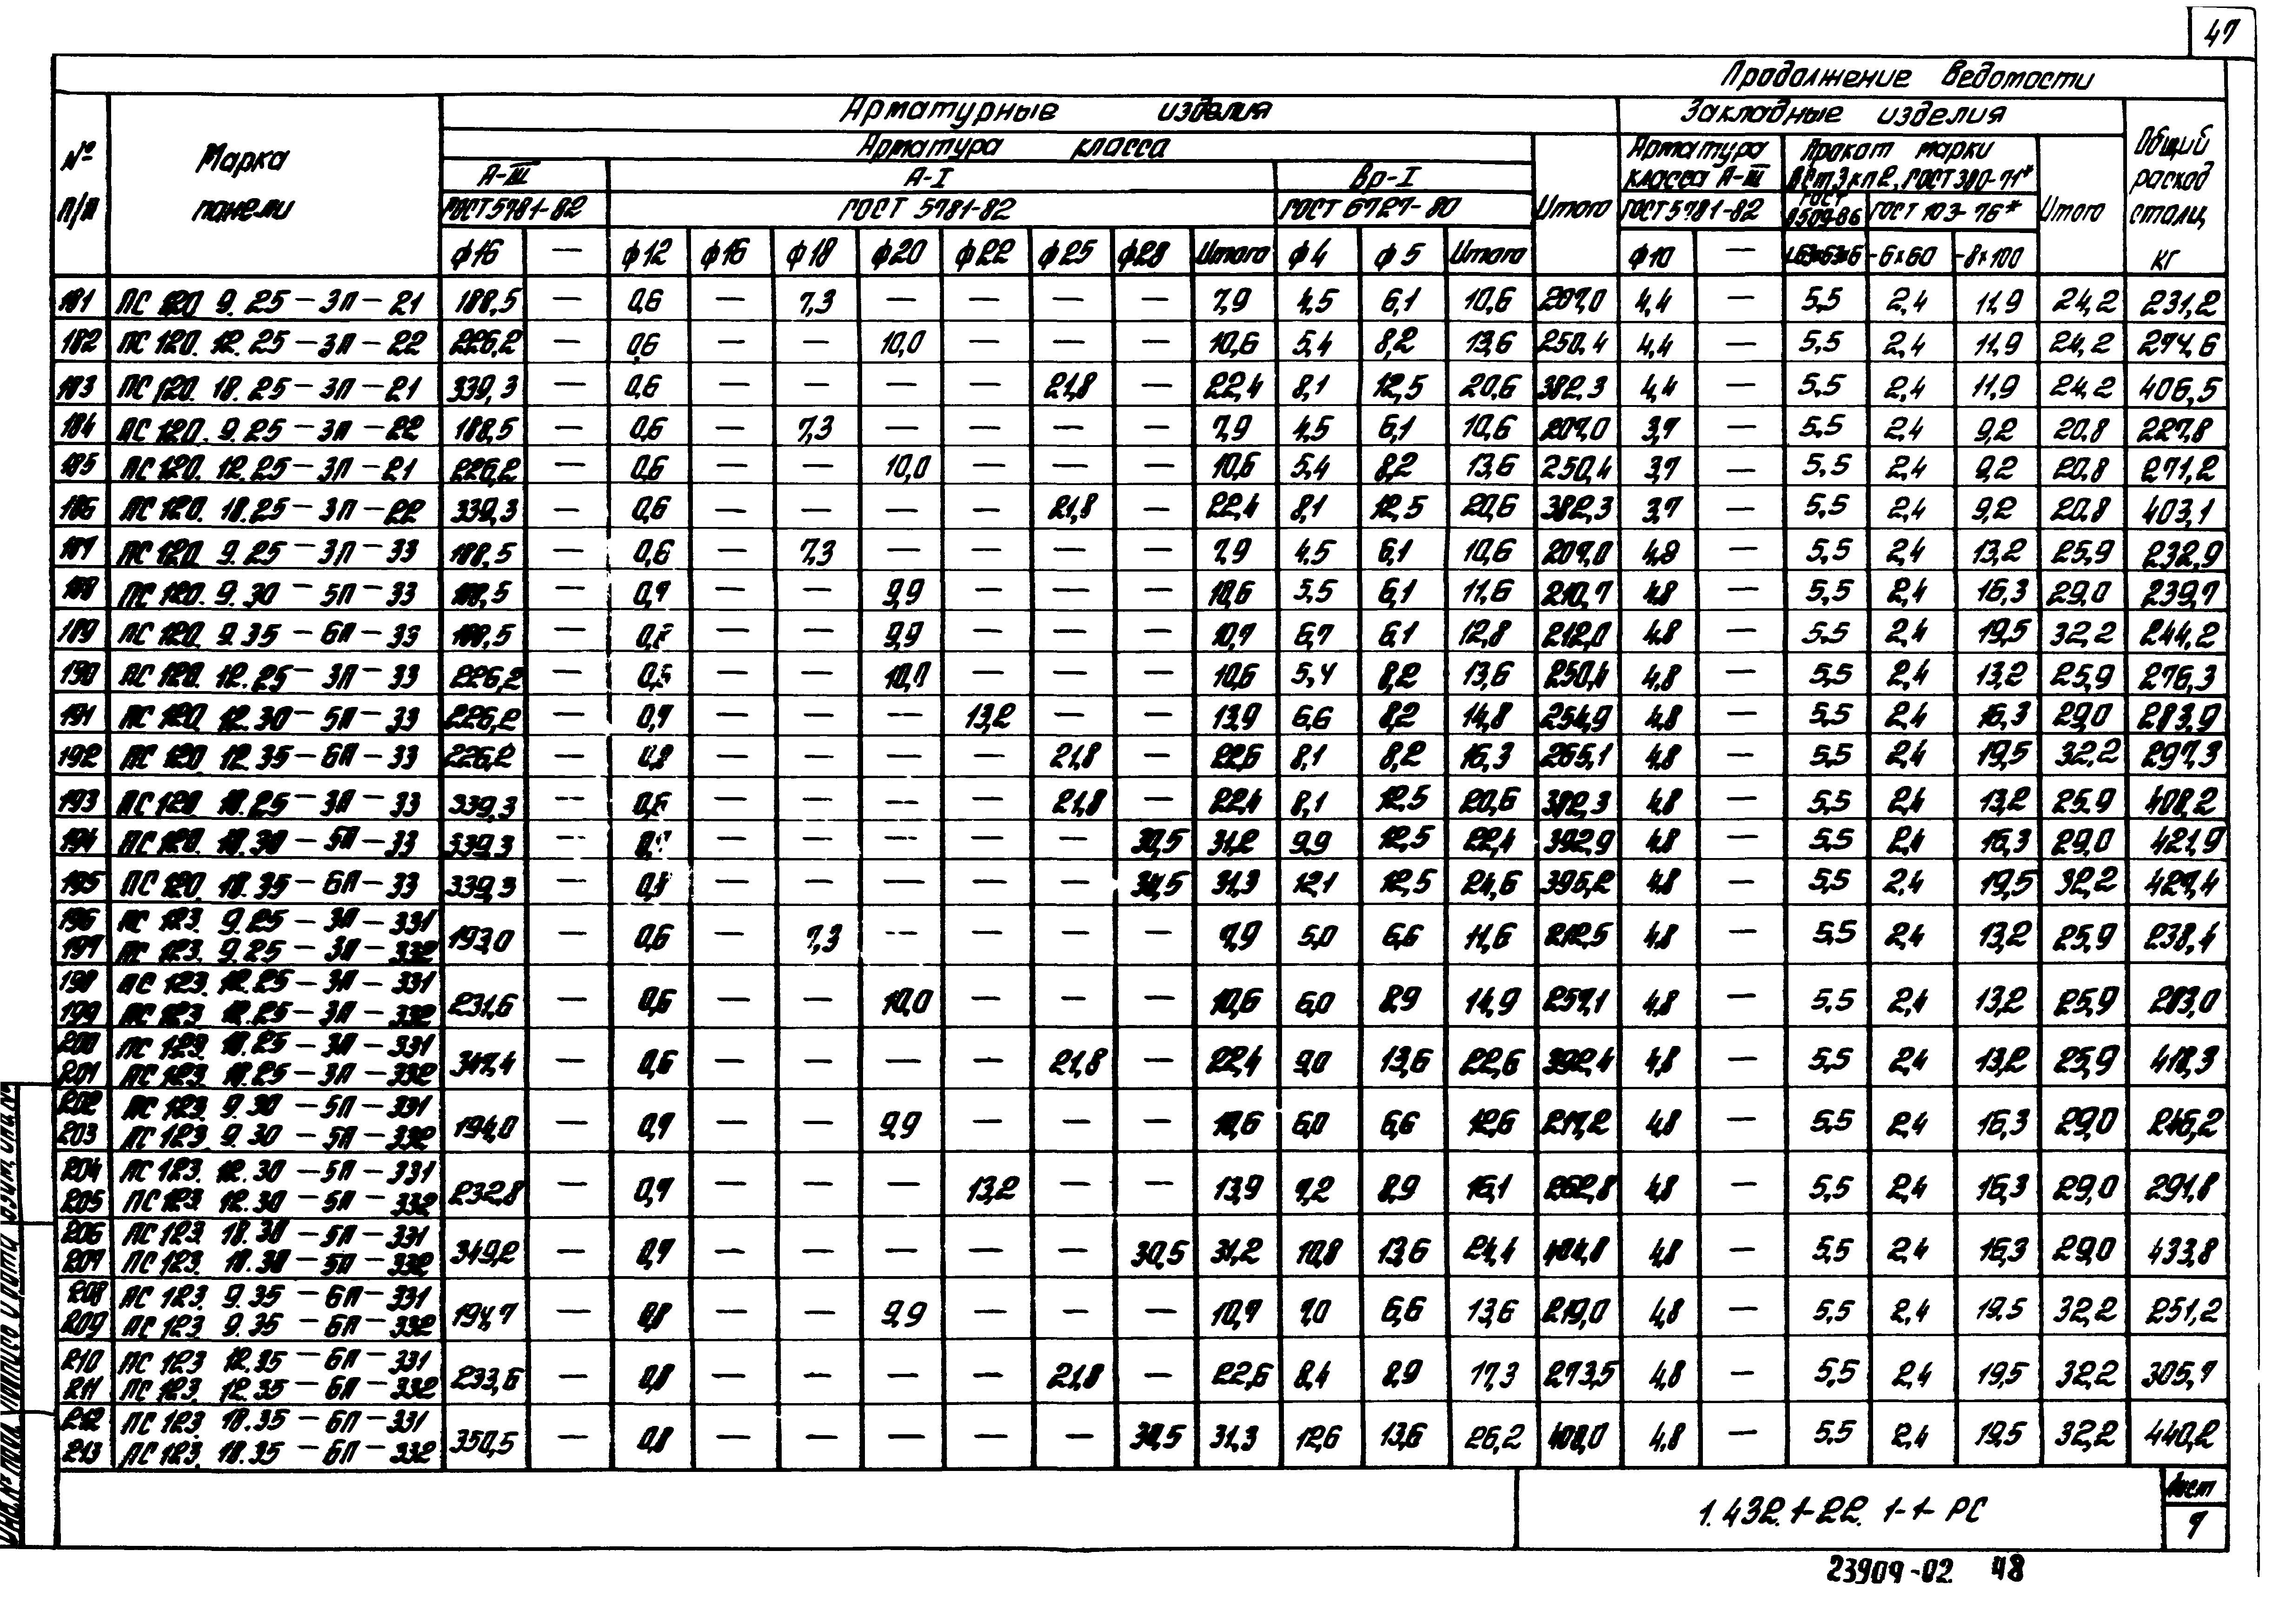 47
Продолжение ведомости
№ п/п
Марка панели
Арматурные изделия
Закладные изделия
Общий расход стали, кг
Арматура класса
Итого
Арматура класса А-III
Прокат марки ВСт3кп2, ГОСТ 380-71*
Итого
А-III
А-I
Вр-I
ГОСТ 5781-82
ГОСТ 5781-82
ГОСТ 6727-80
ГОСТ 5781-82
ГОСТ 8509-86
ГОСТ 103-76*
ф16 — ф12 ф16 ф18 ф20 ф22 ф25 ф28 Итого ф4 ф5 Итого ф10 — L63×63×6 -6×60 -8×100
181 ПС 120. 9.25-3П-21 188,5 — 0,6 — 7,3 — — — — 7,9 4,5 6,1 10,6 207,0 4,4 — 5,5 2,4 11,9 24,2 231,2
182 ПС 120. 12.25-3П-22 226,2 — 0,6 — — 10,0 — — — 10,6 5,4 8,2 13,6 250,4 4,4 — 5,5 2,4 11,9 24,2 274,6
183 ПС 120. 18.25-3П-21 339,3 — 0,6 — — — — 21,8 — 22,4 8,1 12,5 20,6 382,3 4,4 — 5,5 2,4 11,9 24,2 406,5
184 ПС 120. 9.25-3П-22 188,5 — 0,6 — 7,3 — — — — 7,9 4,5 6,1 10,6 207,0 3,7 — 5,5 2,4 9,2 20,8 227,8
185 ПС 120. 12.25-3П-21 226,2 — 0,6 — — 10,0 — — — 10,6 5,4 8,2 13,6 250,4 3,7 — 5,5 2,4 9,2 20,8 271,2
186 ПС 120. 18.25-3П-22 339,3 — 0,6 — — — — 21,8 — 22,4 8,1 12,5 20,6 382,3 3,7 — 5,5 2,4 9,2 20,8 403,1
187 ПС 120. 9.25-3П-33 188,5 — 0,6 — 7,3 — — — — 7,9 4,5 6,1 10,6 207,0 4,8 — 5,5 2,4 13,2 25,9 232,9
188 ПС 120. 9.30-5П-33 188,5 — 0,7 — — 9,9 — — — 10,6 5,5 6,1 11,6 210,7 4,8 — 5,5 2,4 16,3 29,0 239,7
189 ПС 120. 9.35-6П-33 188,5 — 0,8 — — 9,9 — — — 10,7 6,7 6,1 12,8 212,0 4,8 — 5,5 2,4 19,5 32,2 244,2
190 ПС 120. 12.25-3П-33 226,2 — 0,6 — — 10,0 — — — 10,6 5,4 8,2 13,6 250,4 4,8 — 5,5 2,4 13,2 25,9 276,3
191 ПС 120. 12.30-5П-33 226,2 — 0,7 — — — 13,2 — — 13,9 6,6 8,2 14,8 254,9 4,8 — 5,5 2,4 16,3 29,0 283,9
192 ПС 120. 12.35-6П-33 226,2 — 0,8 — — — — 21,8 — 22,6 8,1 8,2 16,3 265,1 4,8 — 5,5 2,4 19,5 32,2 297,3
193 ПС 120. 18.25-3П-33 339,3 — 0,6 — — — — 21,8 — 22,4 8,1 12,5 20,6 382,3 4,8 — 5,5 2,4 13,2 25,9 408,2
194 ПС 120. 18.30-5П-33 339,3 — 0,7 — — — — — 30,5 31,2 9,9 12,5 22,4 392,9 4,8 — 5,5 2,4 16,3 29,0 421,9
195 ПС 120. 18.35-6П-33 339,3 — 0,8 — — — — — 30,5 31,3 12,1 12,5 24,6 395,2 4,8 — 5,5 2,4 19,5 32,2 427,4
196 ПС 123. 9.25-3П-331
197 ПС 123. 9.25-3П-332 193,0 — 0,6 — 7,3 — — — — 7,9 5,0 6,6 11,6 212,5 4,8 — 5,5 2,4 13,2 25,9 238,4
198 ПС 123. 12.25-3П-331
199 ПС 123. 12.25-3П-332 231,6 — 0,6 — — 10,0 — — — 10,6 6,0 8,9 14,9 257,1 4,8 — 5,5 2,4 13,2 25,9 283,0
200 ПС 123. 18.25-3П-331
201 ПС 123. 18.25-3П-332 347,4 — 0,6 — — — — 21,8 — 22,4 9,0 13,6 22,6 392,4 4,8 — 5,5 2,4 13,2 25,9 418,3
202 ПС 123. 9.30-5П-331
203 ПС 123. 9.30-5П-332 194,0 — 0,7 — — 9,9 — — — 10,6 6,0 6,6 12,6 217,2 4,8 — 5,5 2,4 16,3 29,0 246,2
204 ПС 123. 12.30-5П-331
205 ПС 123. 12.30-5П-332 232,8 — 0,7 — — — 13,2 — — 13,9 7,2 8,9 16,1 262,8 4,8 — 5,5 2,4 16,3 29,0 291,8
206 ПС 123. 18.30-5П-331
207 ПС 123. 18.30-5П-332 349,2 — 0,7 — — — — — 30,5 31,2 10,8 13,6 24,4 404,8 4,8 — 5,5 2,4 16,3 29,0 433,8
208 ПС 123. 9.35-6П-331
209 ПС 123. 9.35-6П-332 194,7 — 0,8 — — 9,9 — — — 10,7 7,0 6,6 13,6 219,0 4,8 — 5,5 2,4 19,5 32,2 251,2
210 ПС 123. 12.35-6П-331
211 ПС 123. 12.35-6П-332 233,6 — 0,8 — — — — 21,8 — 22,6 8,4 8,9 17,3 273,5 4,8 — 5,5 2,4 19,5 32,2 305,7
212 ПС 123. 18.35-6П-331
213 ПС 123. 18.35-6П-332 350,5 — 0,8 — — — — — 30,5 31,3 12,6 13,6 26,2 408,0 4,8 — 5,5 2,4 19,5 32,2 440,2
1.432.1-22.1-1-РС
Лист
7
23909-02 48
Инв.№ подл. Подпись и дата Взам.инв.№